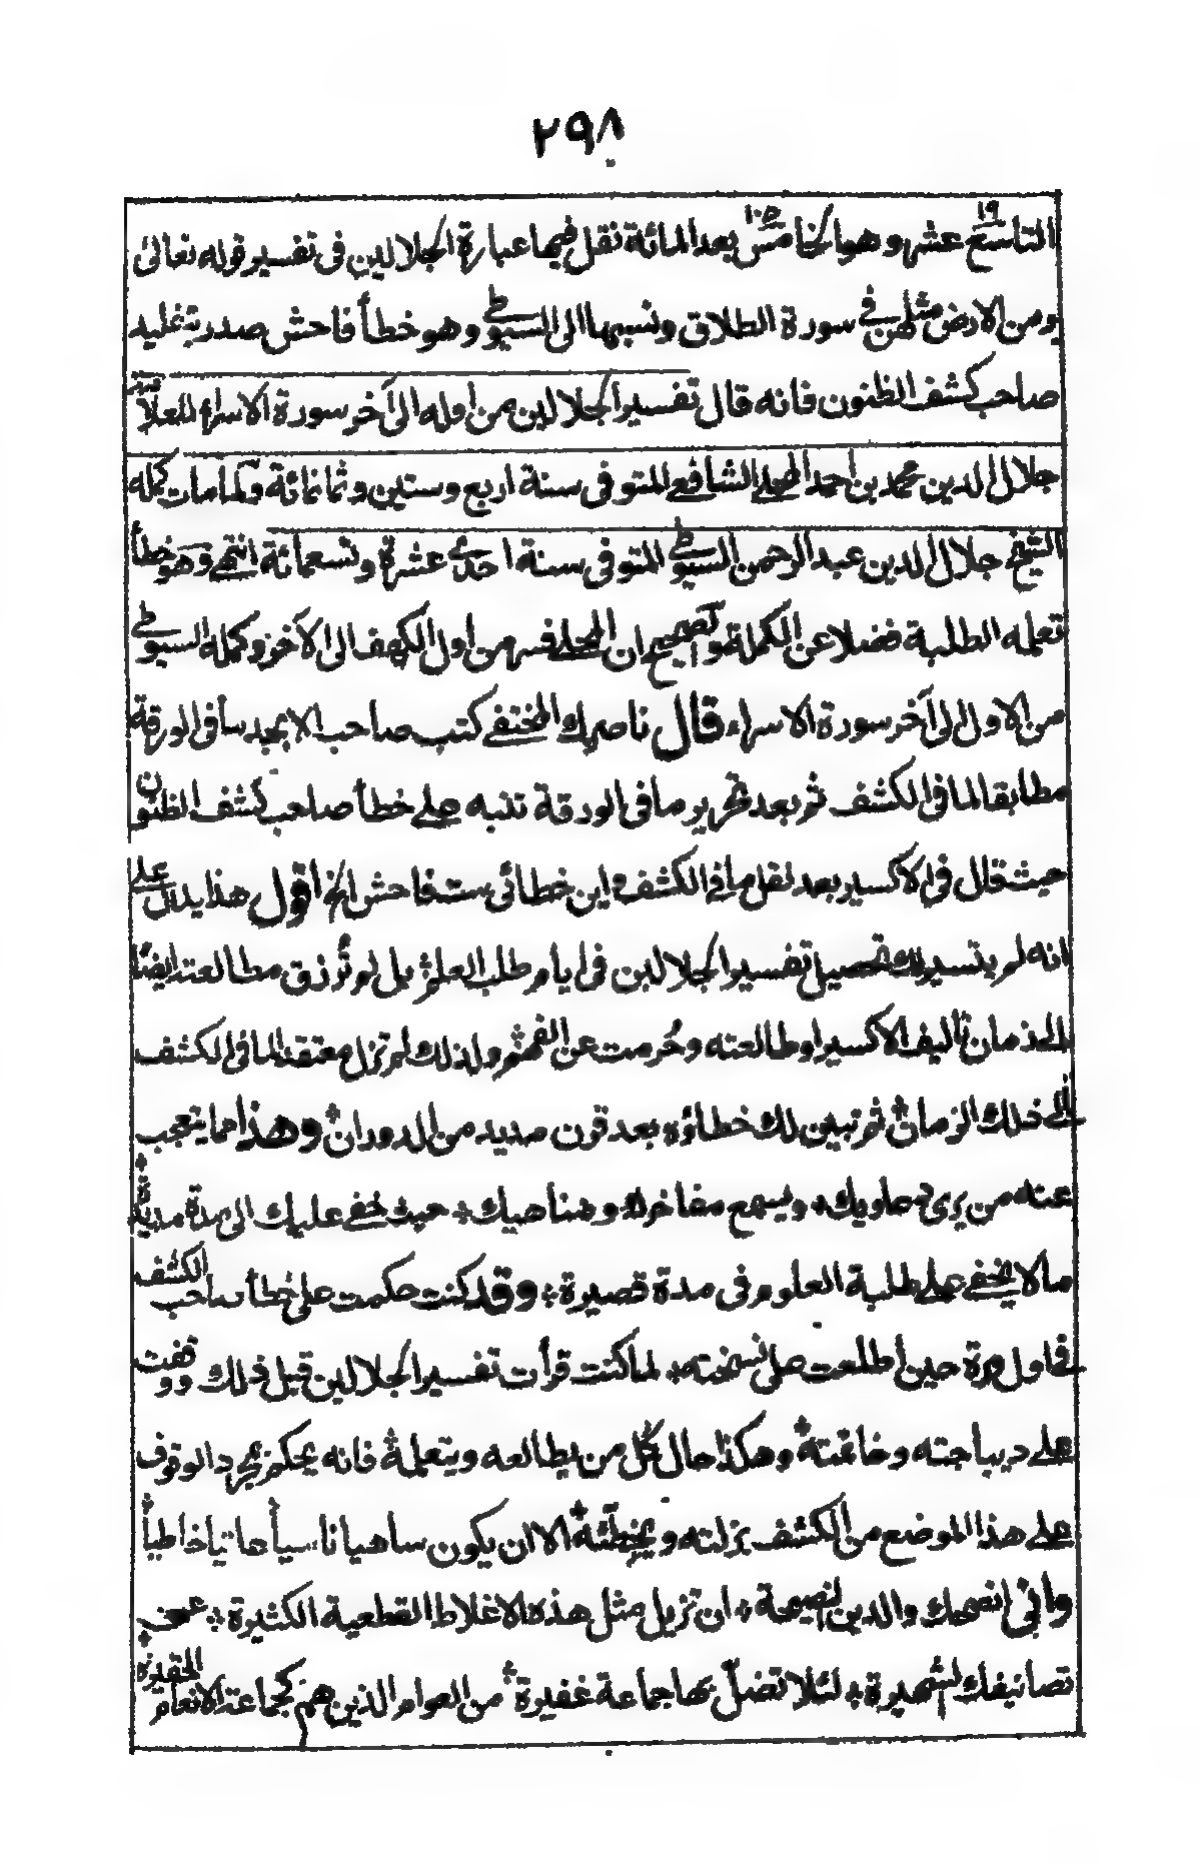 ٢٩٨
١٩ ١٠٥
التاسع عشر وهو الخامس بعد المائة نقل فيها عبارة الجلالين فى تفسير قوله تعالى
ومن الارض مثلهن فى سورة الطلاق ونسبها الى السيوطى وهو خطأ فاحش صدر بتقليد
صاحب كشف الظنون فانه قال تفسير الجلالين من اوله الى آخر سورة الاسراء للعلامة
جلال الدين محمد بن احمد المحلى الشافعى المتوفى سنة اربع وستين وثمانمائة ولما مات كمله
الشيخ جلال الدين عبد الرحمن السيوطى المتوفى سنة احدى عشرة وتسعمائة انتهى وهو خطأ
تعلمه الطلبة فضلا عن الكملة والصحيح ان المحلى فسر من اول الكهف الى الآخر وكمله السيوطى
من الاول الى آخر سورة الاسراء قال ناصرك المختفى كتب صاحب الابجد سأفى الورقة
مطابقا لما فى الكشف ثم بعد تحرير ما فى الورقة تنبه على خطأ صاحب كشف الظنون
حيث قال فى الاكسير بعد نقل ما فى الكشف واين خطائى ست فاحش الخ اقول هذا يدل على
انه لم يتسير لك تحصيل تفسير الجلالين فى ايام طلب العلم بل لم ترزق مطالعته ايضا
الى زمان تأليف الاكسير او طالعته وحرمت عن الفهم ولذلك لم تزل معتقدا لما فى الكشف
الى ذلك الزمان ثم تبين لك خطاؤه بعد قرن مديد من الدوران وهذا مما يتعجب
عنه من يرى دعاويك ويسمع مفاخرك ومناهيك حيث خفى عليك الى مدة مديدة
ما لا يخفى على طلبة العلوم فى مدة قصيرة وقد كنت حكمت على خطأ صاحب الكشف
فى اول مرة حين اطلعت على نسخته لما كنت قرأت تفسير الجلالين قبل ذلك ووقفت
على ديباجته وخاتمته وهكذا حال كل من يطالعه ويتعلمه فانه يحكم بمجرد الوقوف
على هذا الموضع من الكشف بزلته ويخطئه الا ان يكون ساهيا ناسيا عاتيا خاطيا
وانى انصحك والدين النصيحة ان تزيل مثل هذه الاغلاط القطعية الكثيرة عن
تصانيفك الشهيرة لئلا تضل بها جماعة غفيرة من العوام الذين هم كجماعة الانعام الحقيرة